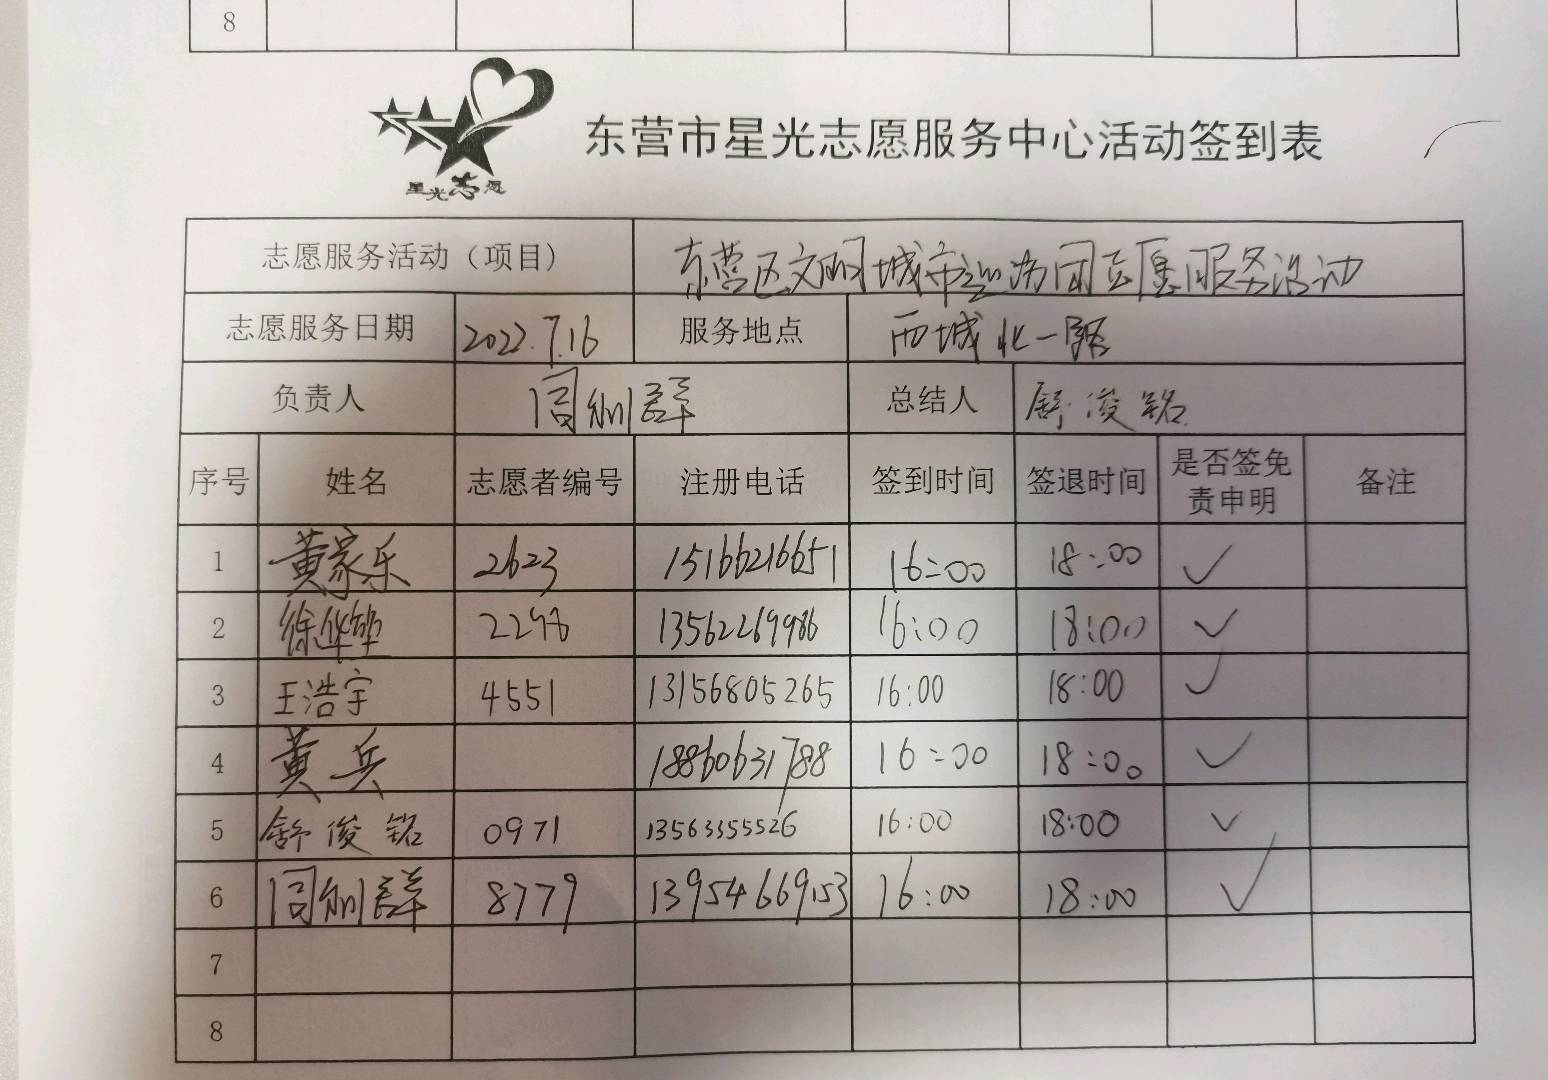 8
星光志愿
东营市星光志愿服务中心活动签到表
志愿服务活动（项目） 东营区文明城市巡访团志愿服务活动
志愿服务日期 2022.7.16 服务地点 西城北一路
负责人 群 总结人 舒俊铭
序号 姓名 志愿者编号 注册电话 签到时间 签退时间 是否签免责申明 备注
1 黄家乐 2623 15166216651 16:00 18:00 ✓
2 徐华 13562269986 16:00 18:00 ✓
3 王浩宇 4551 13156805265 16:00 18:00 ✓
4 黄兵 18860631788 16:00 18:00 ✓
5 舒俊铭 0971 13563355526 16:00 18:00 ✓
6 群 8779 13954669153 16:00 18:00 ✓
7
8